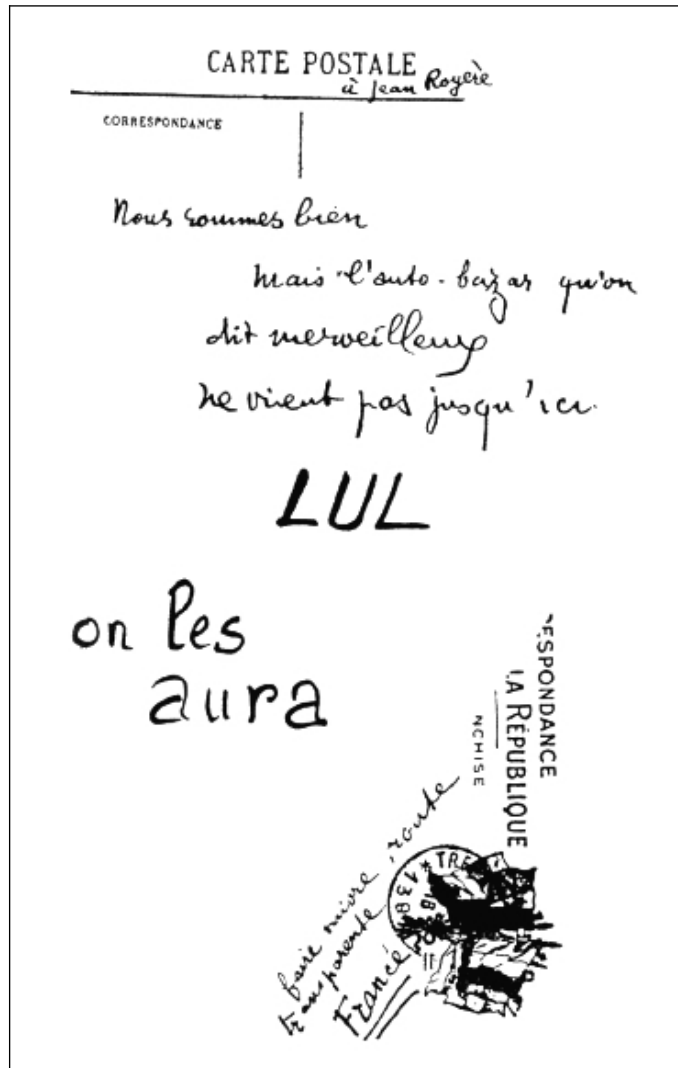 CARTE POSTALE
à Jean Royère
CORRESPONDANCE
Nous sommes bien
mais l'auto-bazar qu'on
dit merveilleux
ne vient pas jusqu'ici.
LUL
on les
aura
ESPONDANCE
LA RÉPUBLIQUE
NCHISE
faire suivre route
transparente
France
* TRE
138